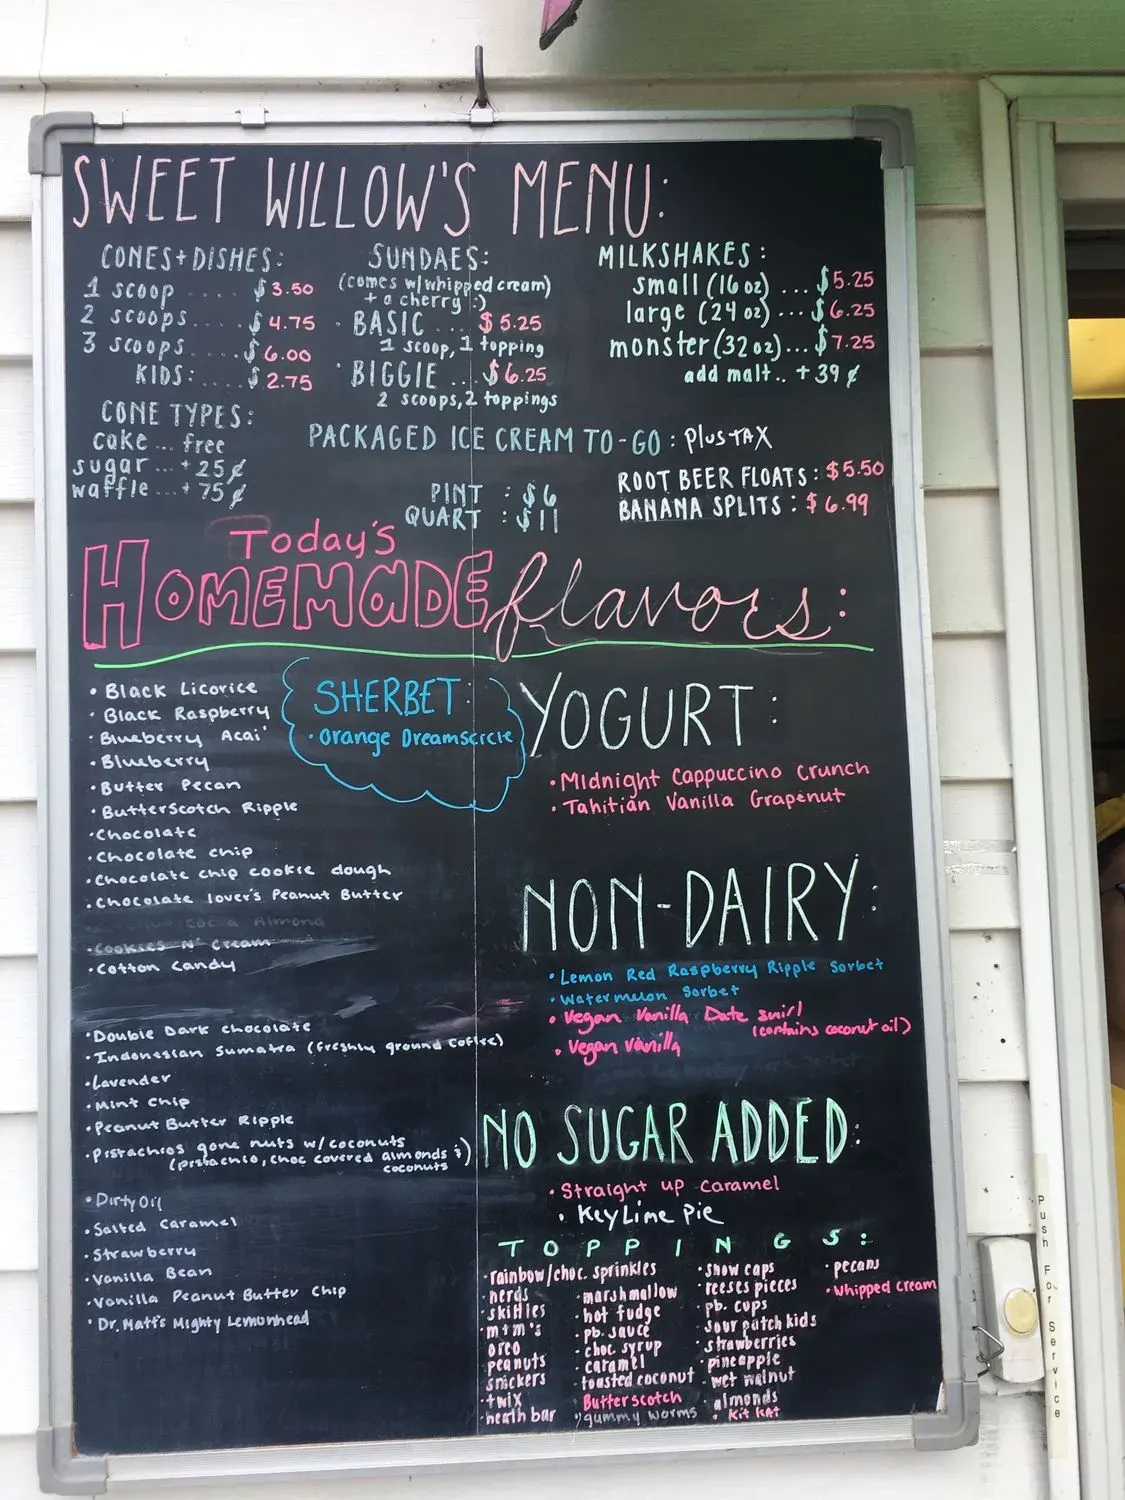 SWEET WILLOW'S MENU:
CONES + DISHES:
1 scoop .... $3.50
2 scoops .... $4.75
3 scoops .... $6.00
KIDS: .... $2.75
CONE TYPES:
cake ... free
sugar ... +25¢
waffle ... +75¢
SUNDAES:
(comes w/whipped cream)
+ a cherry :)
· BASIC ... $5.25
1 scoop, 1 topping
· BIGGIE ... $6.25
2 scoops, 2 toppings
MILKSHAKES:
small (16 oz) ... $5.25
large (24 oz) ... $6.25
monster (32 oz) ... $7.25
add malt .. +39¢
PACKAGED ICE CREAM TO-GO: plus TAX
PINT : $6
QUART : $11
ROOT BEER FLOATS: $5.50
BANANA SPLITS: $6.99
Today's
HOMEMADE flavors:
• Black Licorice
• Black Raspberry
• Blueberry Acai'
• Blueberry
• Butter Pecan
• Butterscotch Ripple
• Chocolate
• Chocolate chip
• Chocolate chip cookie dough
• Chocolate lover's Peanut Butter
Cocoa Almond
• Cookies N' Cream
• Cotton Candy
• Double Dark Chocolate
• Indonesian Sumatra (freshly ground coffee)
• Lavender
• Mint Chip
• Peanut Butter Ripple
• Pistachios gone nuts w/coconuts
(pistachio, choc covered almonds &
coconuts)
• Dirty Oil
• Salted Caramel
• Strawberry
• Vanilla Bean
• Vanilla Peanut Butter Chip
• Dr. Matt's Mighty Lemonhead
SHERBET:
• Orange Dreamsicle
YOGURT:
• Midnight Cappuccino Crunch
• Tahitian Vanilla Grapenut
NON-DAIRY:
• Lemon Red Raspberry Ripple Sorbet
• Watermelon Sorbet
• Vegan Vanilla Date swirl
(contains coconut oil)
• Vegan Vanilla
NO SUGAR ADDED:
• Straight up Caramel
• Key Lime Pie
TOPPINGS:
• rainbow/choc. sprinkles
• nerds
• skittles
• m+m's
• oreo
• peanuts
• snickers
• twix
• heath bar
• marshmallow
• hot fudge
• pb. sauce
• choc. syrup
• caramel
• toasted coconut
• Butterscotch
• gummy worms
• snow caps
• reeses pieces
• pb. cups
• sour patch kids
• strawberries
• pineapple
• wet walnut
• almonds
• Kit Kat
• pecans
• whipped cream
Push For Service